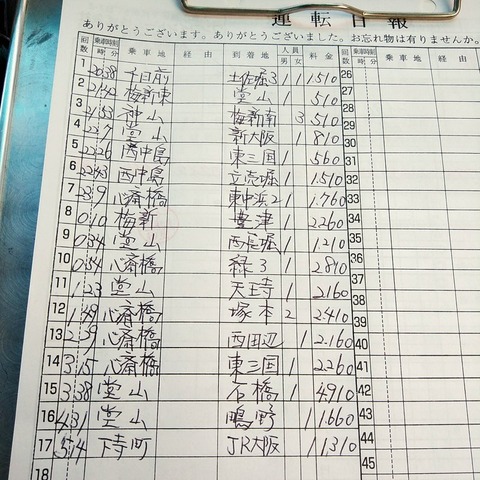 運転日報
ありがとうございます。ありがとうございました。お忘れ物は有りませんか。
回数 乗車時刻 時 分 乗車地 経由 到着地 人員 男 女 料金 回数 乗車時刻 時 分 乗車地 経由
1 20 38 千日前 土佐堀3 1 1 1510 26
2 21 40 梅新東 堂山 1 510 27
3 21 53 神山 梅新南 3 510 28
4 22 7 堂山 新大阪 1 810 29
5 22 26 西中島 東三国 1 560 30
6 22 43 西中島 立売堀 1 1.510 31
7 23 9 心斎橋 東中浜2 1 1.760 33
8 0 10 梅新 豊津 1 2260 34
9 0 34 堂山 西長堀 1 1210 35
10 0 54 心斎橋 緑3 1 2810 36
11 1 23 堂山 天王寺 1 2160 37
12 1 49 心斎橋 塚本 2 2.410 38
13 2 39 心斎橋 西田辺 1 2.160 40
14 3 15 心斎橋 東三国 1 2260 41
15 3 38 堂山 石橋 1 4910 42
16 4 31 堂山 鴫野 1 1.660 43
17 5 14 下寺町 JR大阪 1 1310 44
18 45